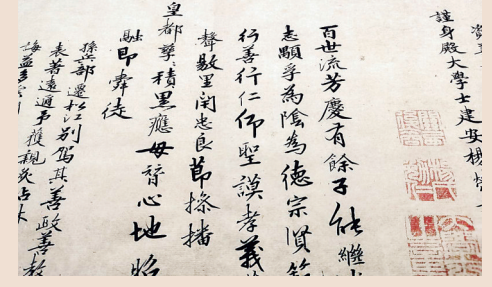 謹身殿大學士建安楊榮
百世流芳慶有餘子能繼
志顯孚為陰為德宗賢
行善行仁仰聖謨孝義
聲數里閈忠良節操播
皇都孳積累應毋替心地昭
融即舜徒
孫部遷松江別駕其善政善教
表著遠邇予獲親炙沾沐
誨益多